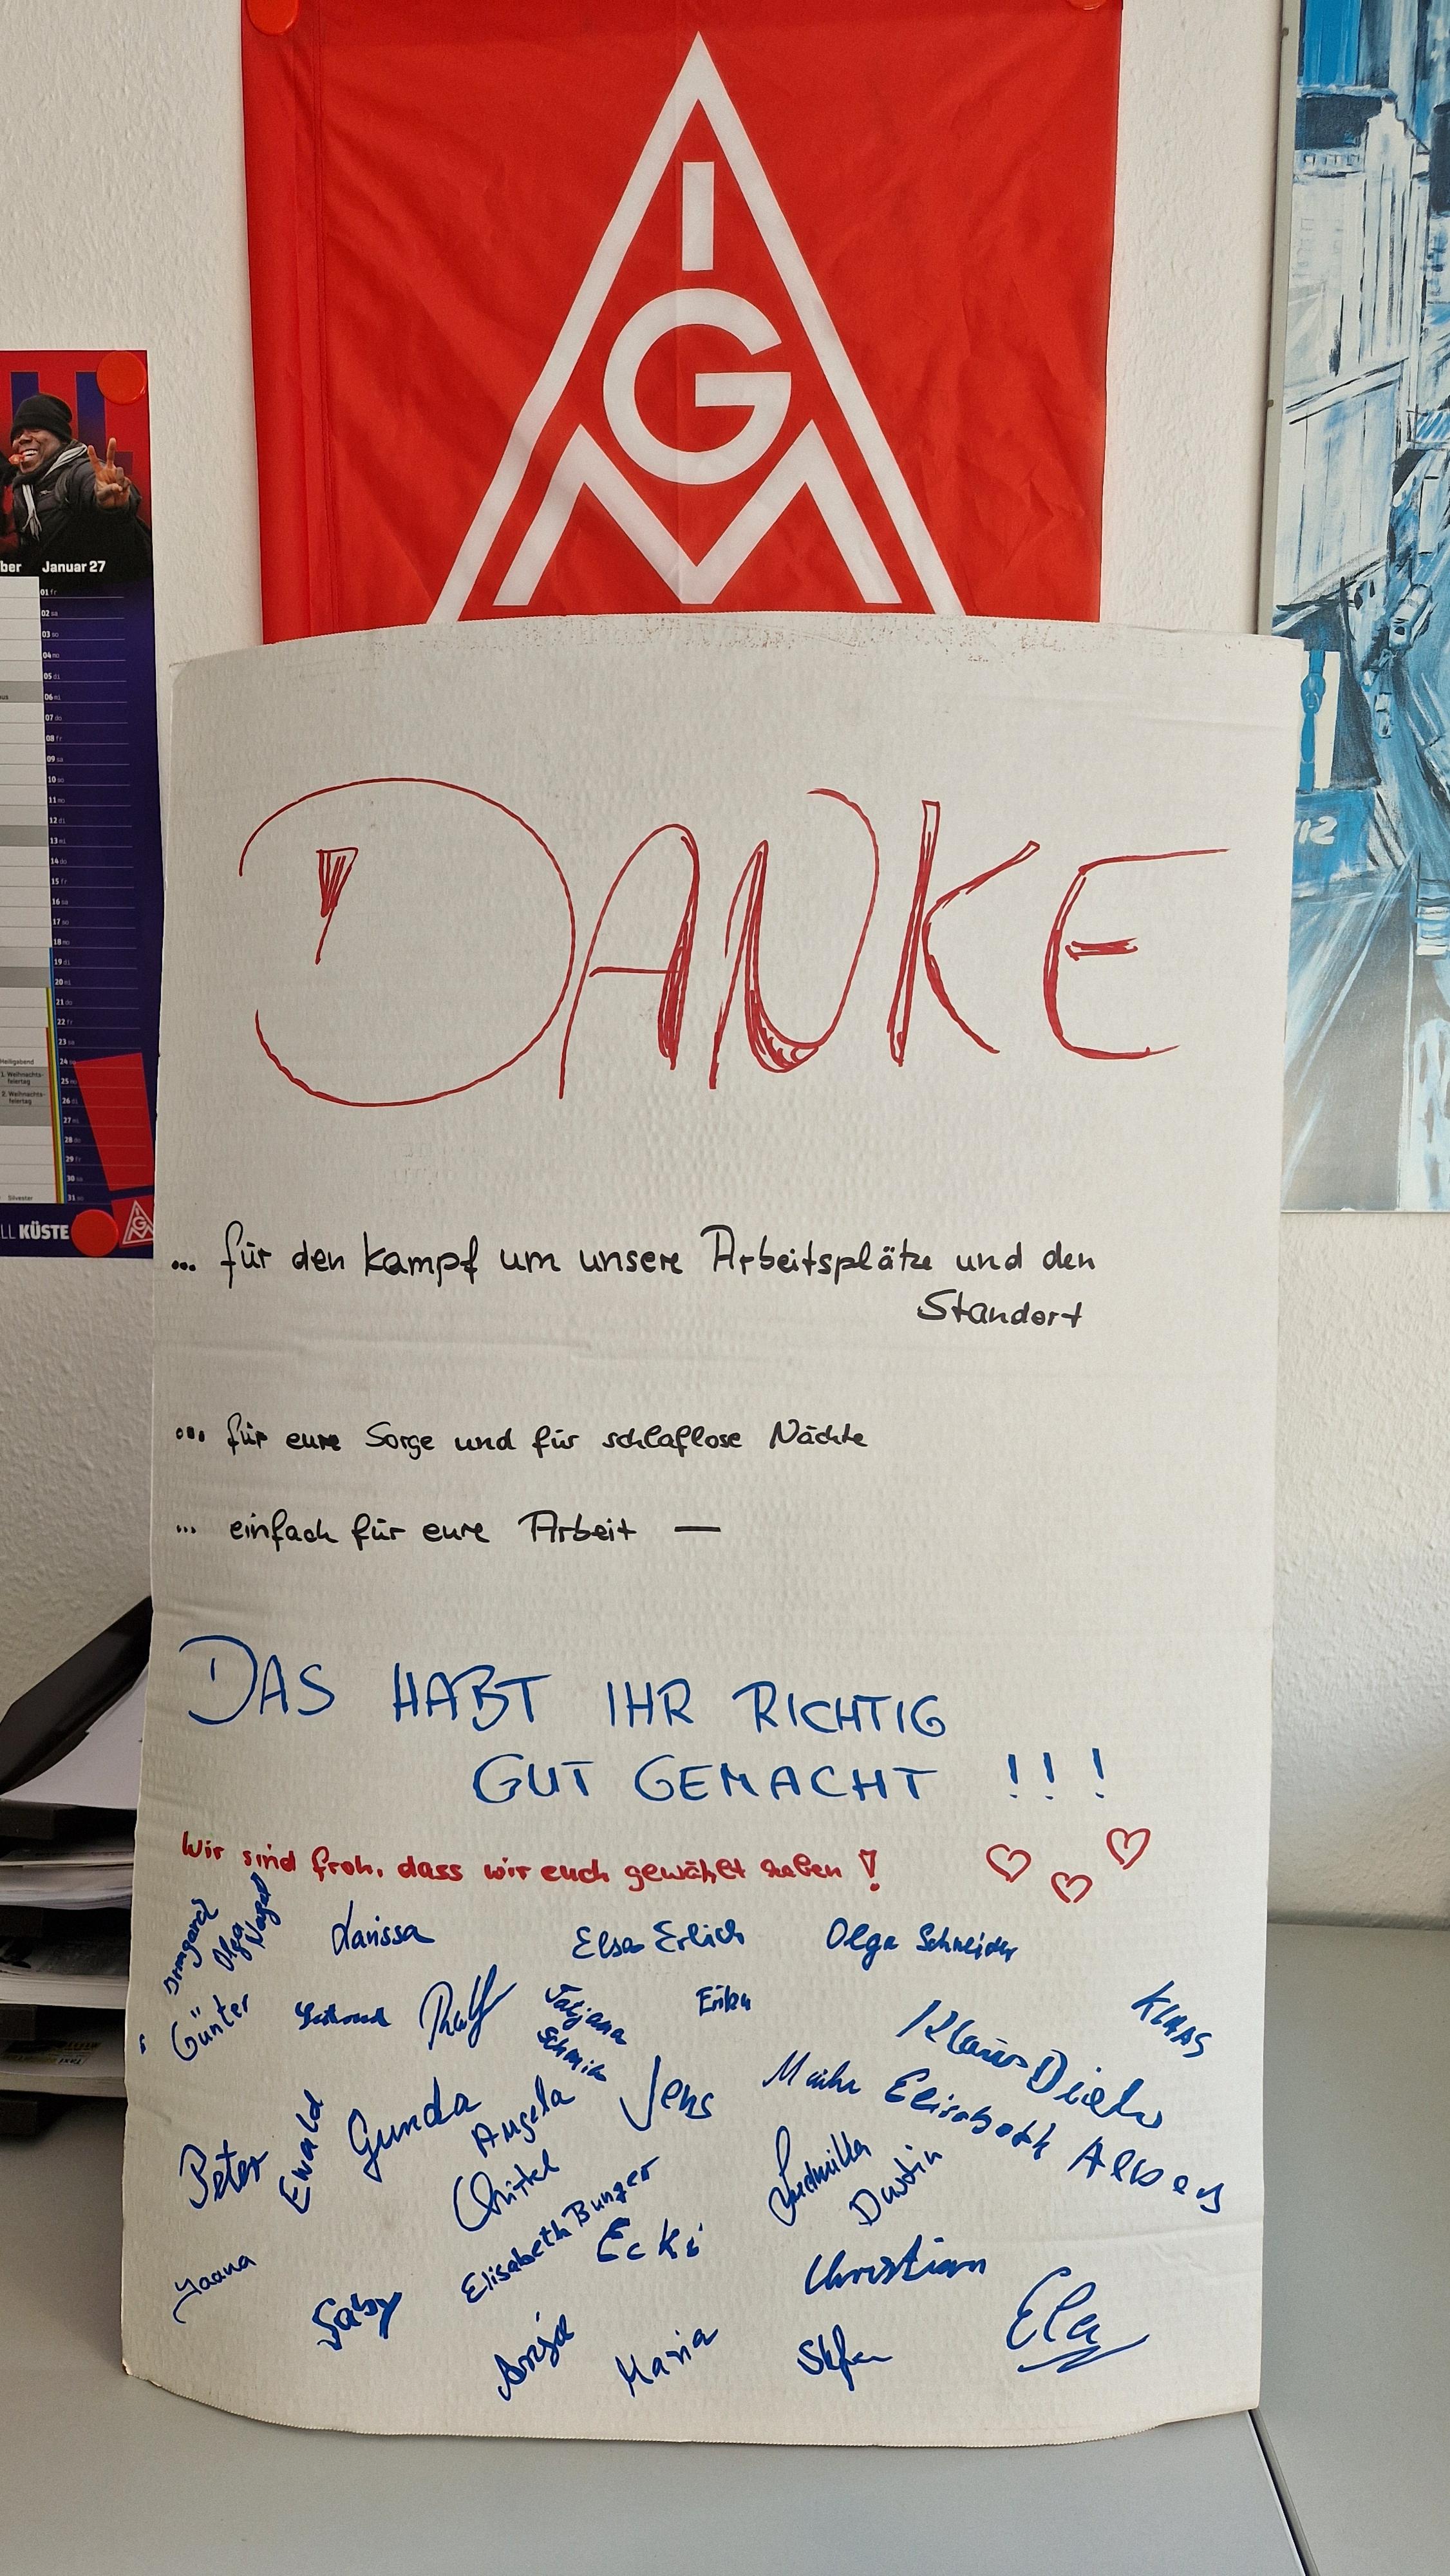 I
G
M
ber Januar 27
01 fr
02 sa
03 so
04 mo
05 di
06 mi
07 do
08 fr
09 sa
10 so
11 mo
12 di
13 mi
14 do
15 fr
16 sa
17 so
18 mo
19 di
20 mi
21 do
22 fr
23 sa
Heiligabend 24 so
1. Weihnachts-
feiertag 25 mo
2. Weihnachts-
feiertag 26 di
27 mi
28 do
29 fr
30 sa
Silvester 31 so
LL KÜSTE
IGM
DANKE
... für den Kampf um unsere Arbeitsplätze und den
Standort
... für eure Sorge und für schlaflose Nächte
... einfach für eure Arbeit —
DAS HABT IHR RICHTIG
GUT GEMACHT !!!
Wir sind froh, dass wir euch gewählt haben!
Irmgard
Olga
Nagel
Larissa
Elsa Erlich
Olga Schneider
Günter
Ralf
Tatjana
Schmidt
Erika
Klaus-Dieter
KLAAS
Peter
Ewald
Gunda
Angela
Jens
Elisabeth Albers
Christel
Elisabeth Bunger
Ludmilla
Dustin
Ecki
Christian
Gaby
Maria
Stefan
Ela